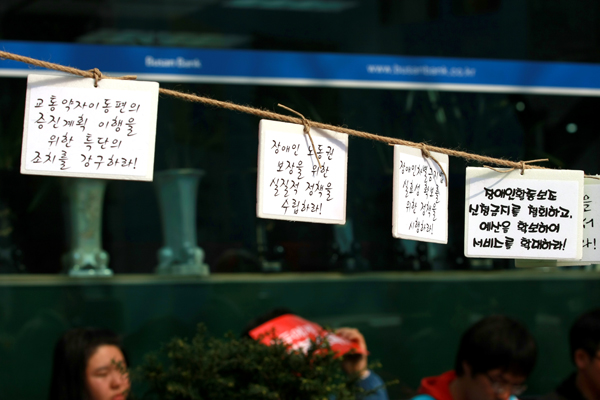 BusanBank
www.busanbank.co.kr
교통약자이동편의
증진계획 이행을
위한 특단의
조치를 강구하라!
장애인 노동권
보장을 위한
실질적 정책을
수립하라!
실효성 확보를
위한 정책을
시행하라!
장애인활동보조
신청금지를 철회하고,
예산을 확보하여
서비스를 확대하라!